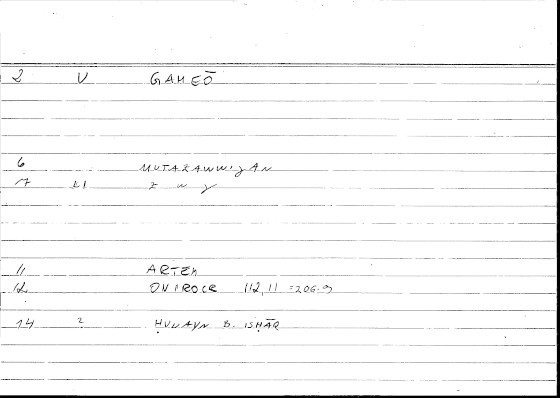 2 V GAMEŌ
6 MUTAZAWWIǧAN
7 EI z w ǧ
11 ARTEM
12 ONIROCR 112,11 =206.9
14 ? ḤUNAYN B. ISḤĀQ